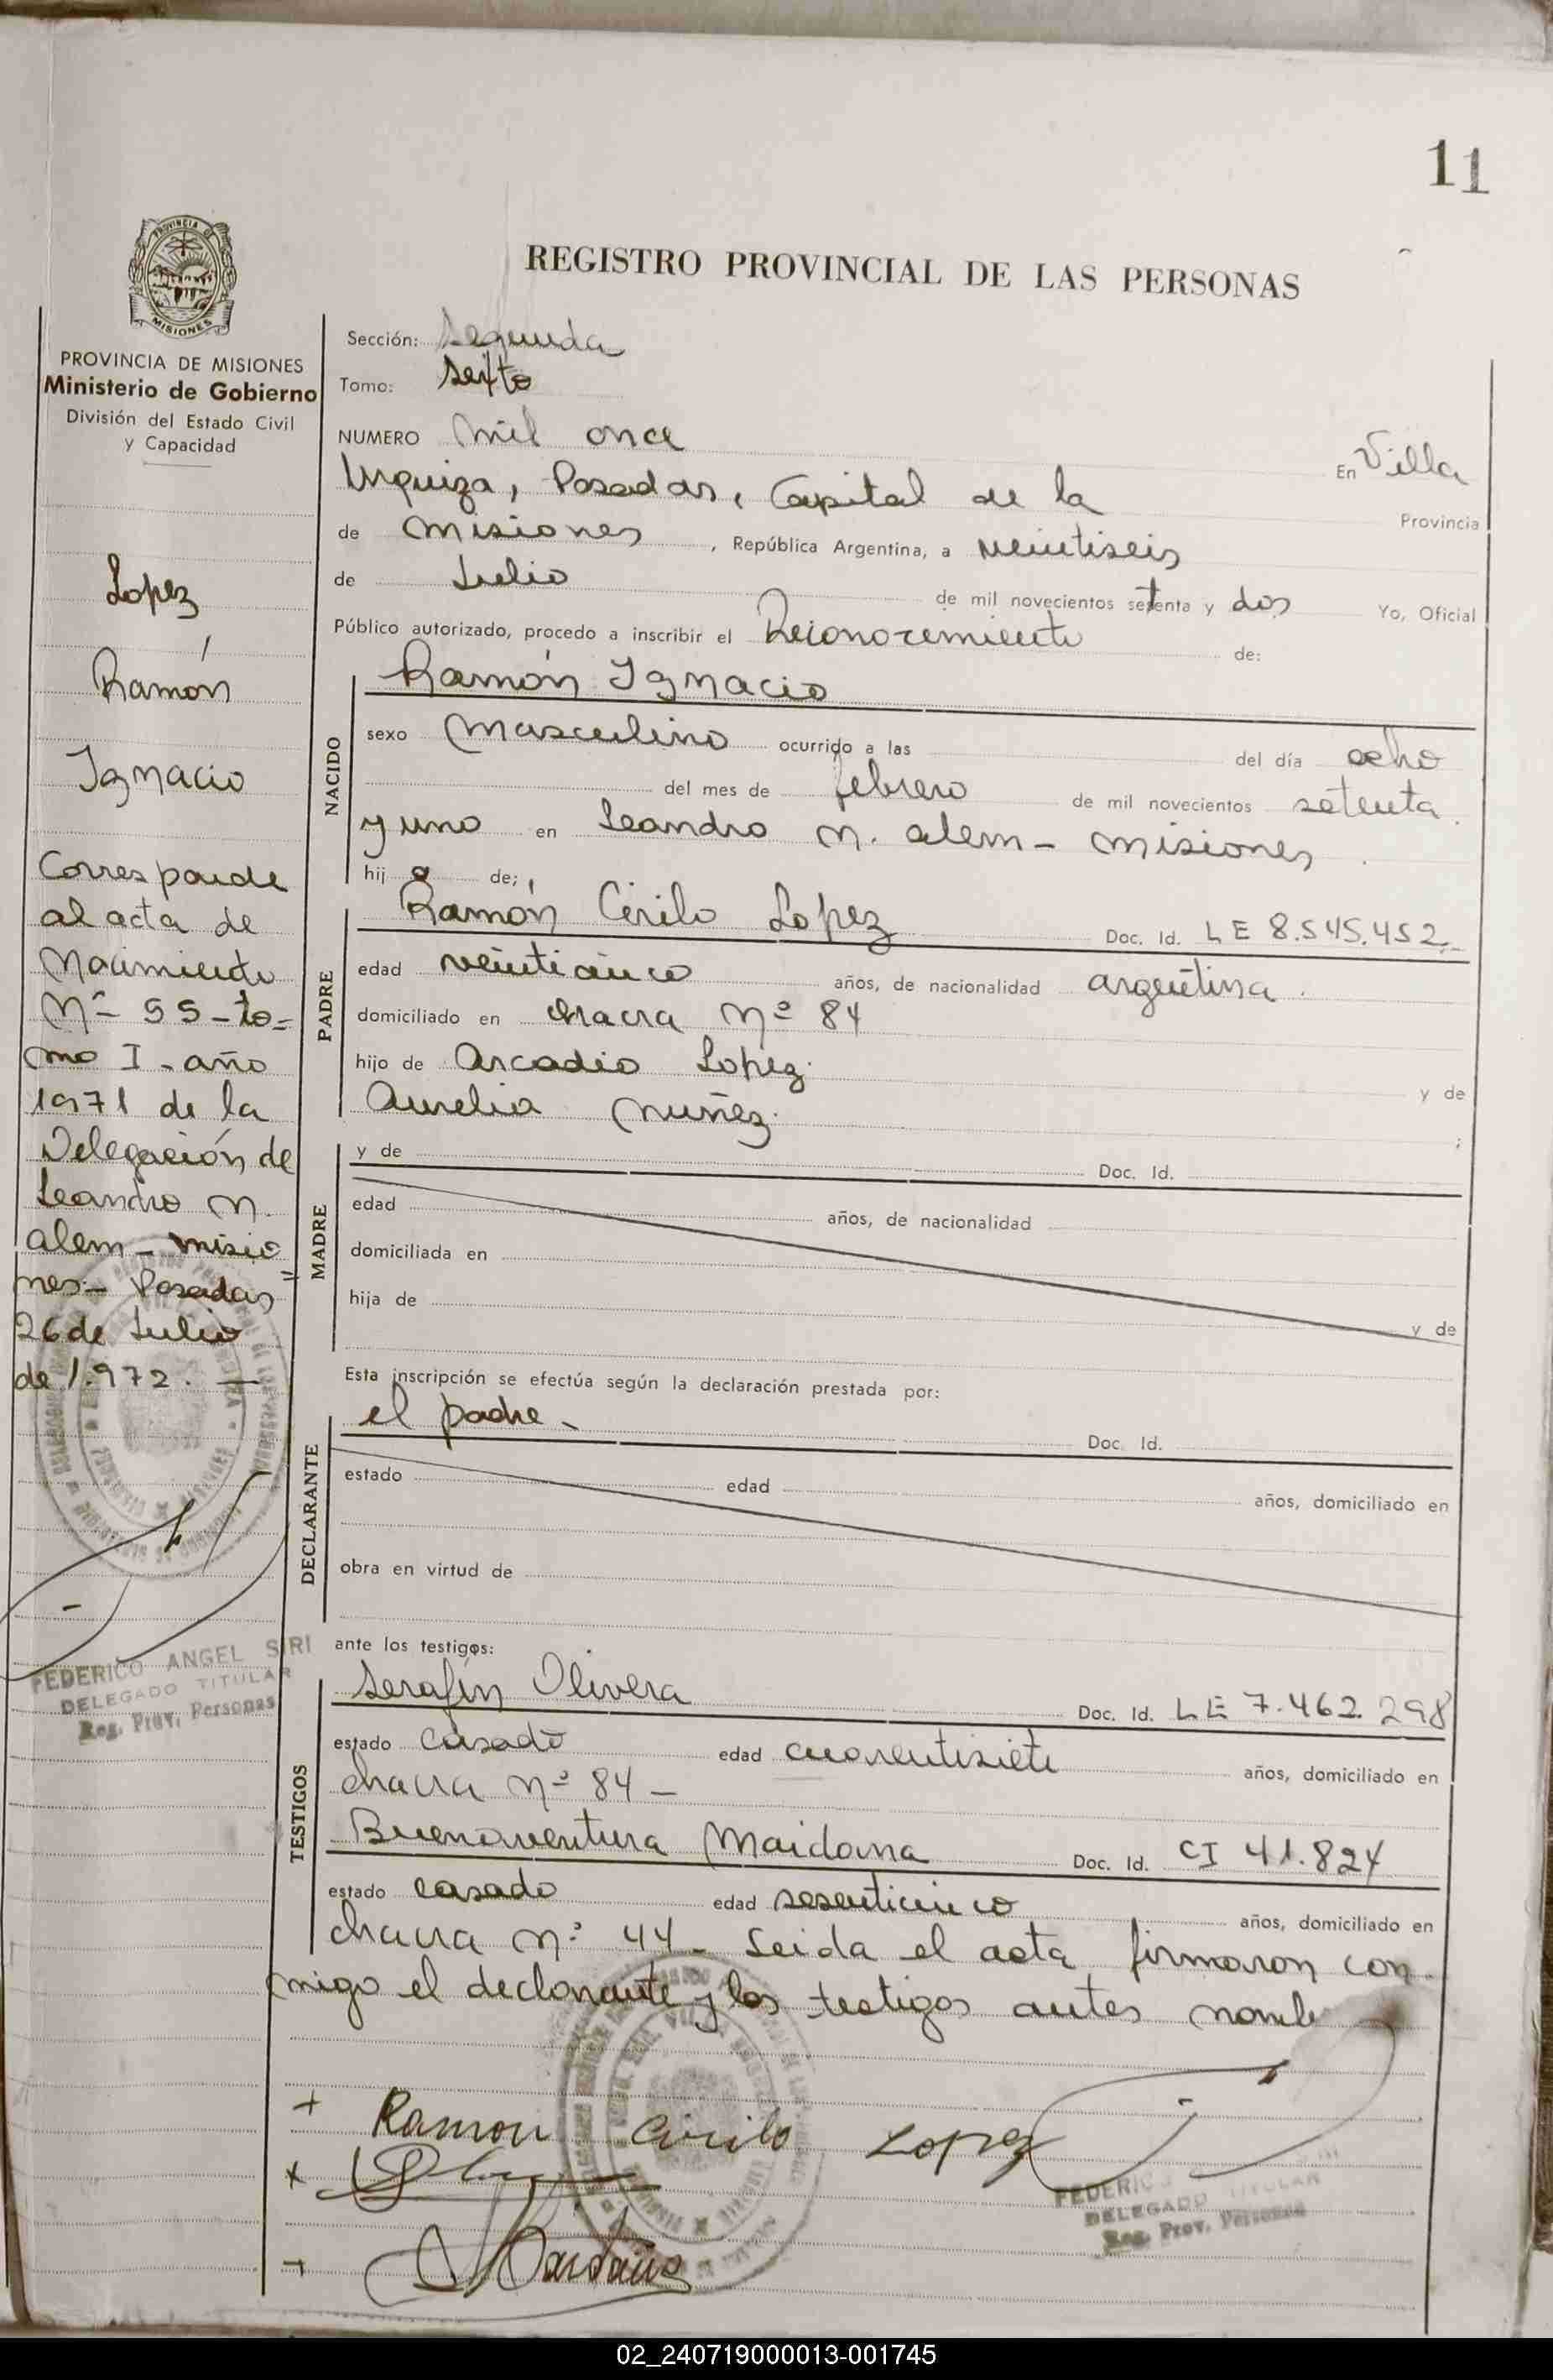 11
REGISTRO PROVINCIAL DE LAS PERSONAS
PROVINCIA DE MISIONES
Ministerio de Gobierno
División del Estado Civil
y Capacidad
Lopez
Ramón
Ignacio
Corresponde
al acta de
Nacimiento
Nº 55 - to=
mo I - año
1971 de la
Delegación de
Leandro N.
alem - misio
nes - Posadas
26 de Julio
de 1.972. -
FEDERICO ANGEL SIRI
DELEGADO TITULAR
Reg. Prov. Personas
Sección: Segunda
Tomo: sexto
NUMERO mil once En Villa
Urquiza, Posadas, Capital de la Provincia
de misiones, República Argentina, a veintiseis
de Julio de mil novecientos setenta y dos Yo, Oficial
Público autorizado, procedo a inscribir el Reconocemiento de:
NACIDO
Ramón Ignacio
sexo masculino ocurrido a las del día ocho
del mes de febrero de mil novecientos setenta
y uno en Leandro N. alem - misiones.
hijo de;
PADRE
Ramón Cirilo Lopez Doc. Id. LE 8.545.452.-
edad veinticinco años, de nacionalidad argentina.
domiciliado en chacra Nº 84
hijo de Arcadio Lopez. y de
Aurelia Nuñez. ;
MADRE
y de Doc. Id.
edad años, de nacionalidad
domiciliada en
hija de
y de
Esta inscripción se efectúa según la declaración prestada por:
DECLARANTE
el padre - Doc. Id.
estado edad años, domiciliado en
obra en virtud de
ante los testigos:
TESTIGOS
Serafín Olivera Doc. Id. LE 7.462.298
estado casado edad cuarentisiete años, domiciliado en
chacra Nº 84 -
Buenaventura Maidana Doc. Id. CI 41.824
estado casado edad sesenticinco años, domiciliado en
chacra Nº 44 - Leida el acta firmaron con
migo el declarante y los testigos antes nomb
+ Ramon Cirilo Lopez
FEDERICO
DELEGADO TITULAR
Reg. Prov. Personas
02_240719000013-001745